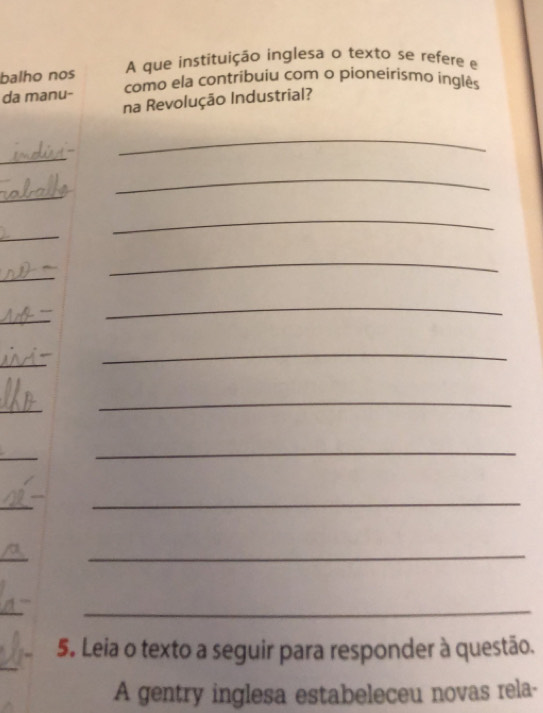 balho nos
da manu-
indivi-
rabalho
A que instituição inglesa o texto se refere e
como ela contribuiu com o pioneirismo inglês
na Revolução Industrial?
5. Leia o texto a seguir para responder à questão.
A gentry inglesa estabeleceu novas rela-